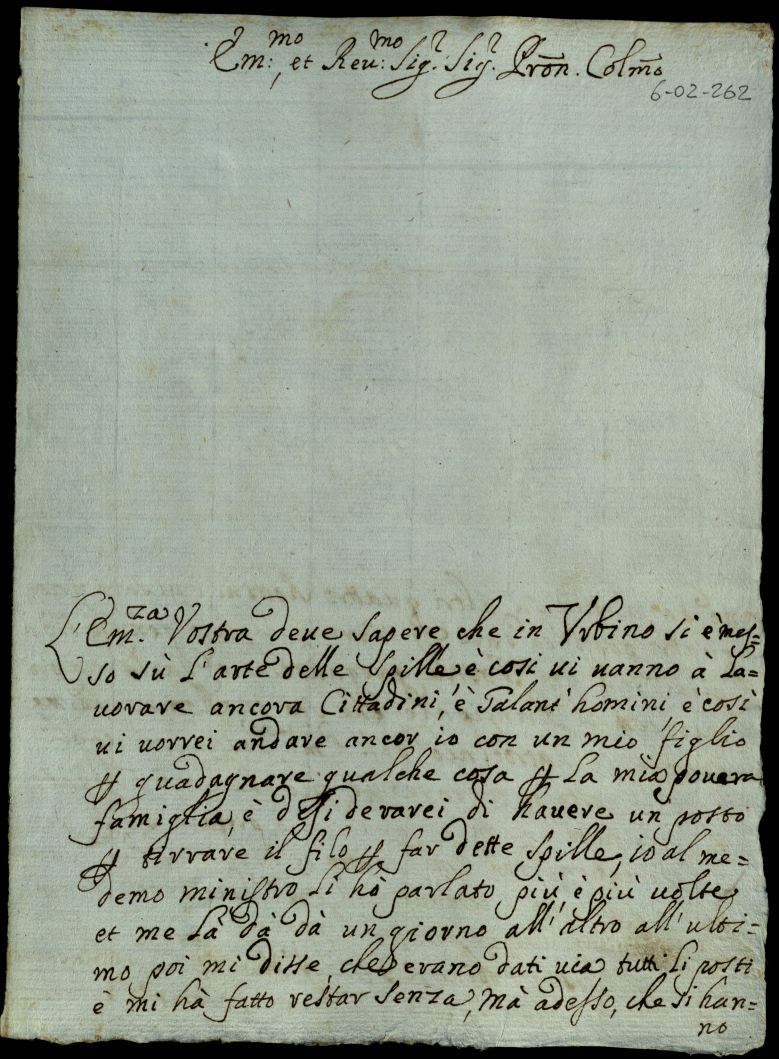 Em:mo et Reu:mo Sigr. Sigr. Pron̄. Colm̄o
6-02-262
L'Em.za Vostra deue sapere che in Vrbino si è mes=
so sù l'arte delle spille è cosi ui uanno à la=
uorare ancora Cittadini, è Galant'homini, è così
ui uorrei andare ancor io con un mio figlio
ꝑ guadagnare qualche cosa ꝑ la mia pouera
famiglia, è desiderarei di hauere un posto
ꝑ tirrare il filo ꝑ far dette spille, io al me=
demo ministro li hò parlato più, è più uolte
et me la dà dà un giorno all'altro all'ulti=
mo poi mi disse, che erano dati uia tutti li posti
è mi hà fatto restar senza, mà adesso, che si han=
no